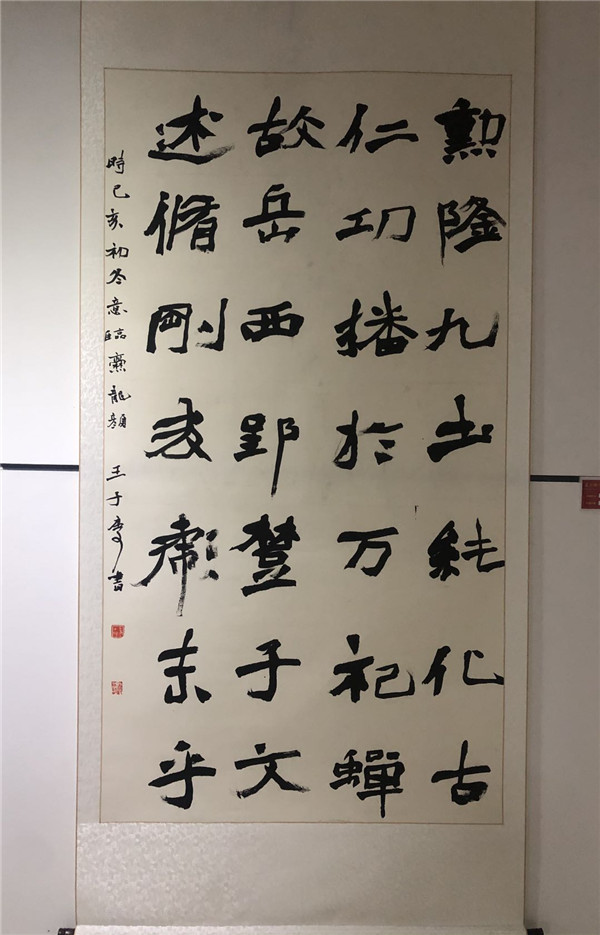 勳隆九土純化古
仁功播於万祀蟬
故岳西郢楚子文
述脩剛乎
時己亥初冬意臨爨龍顏
王子書